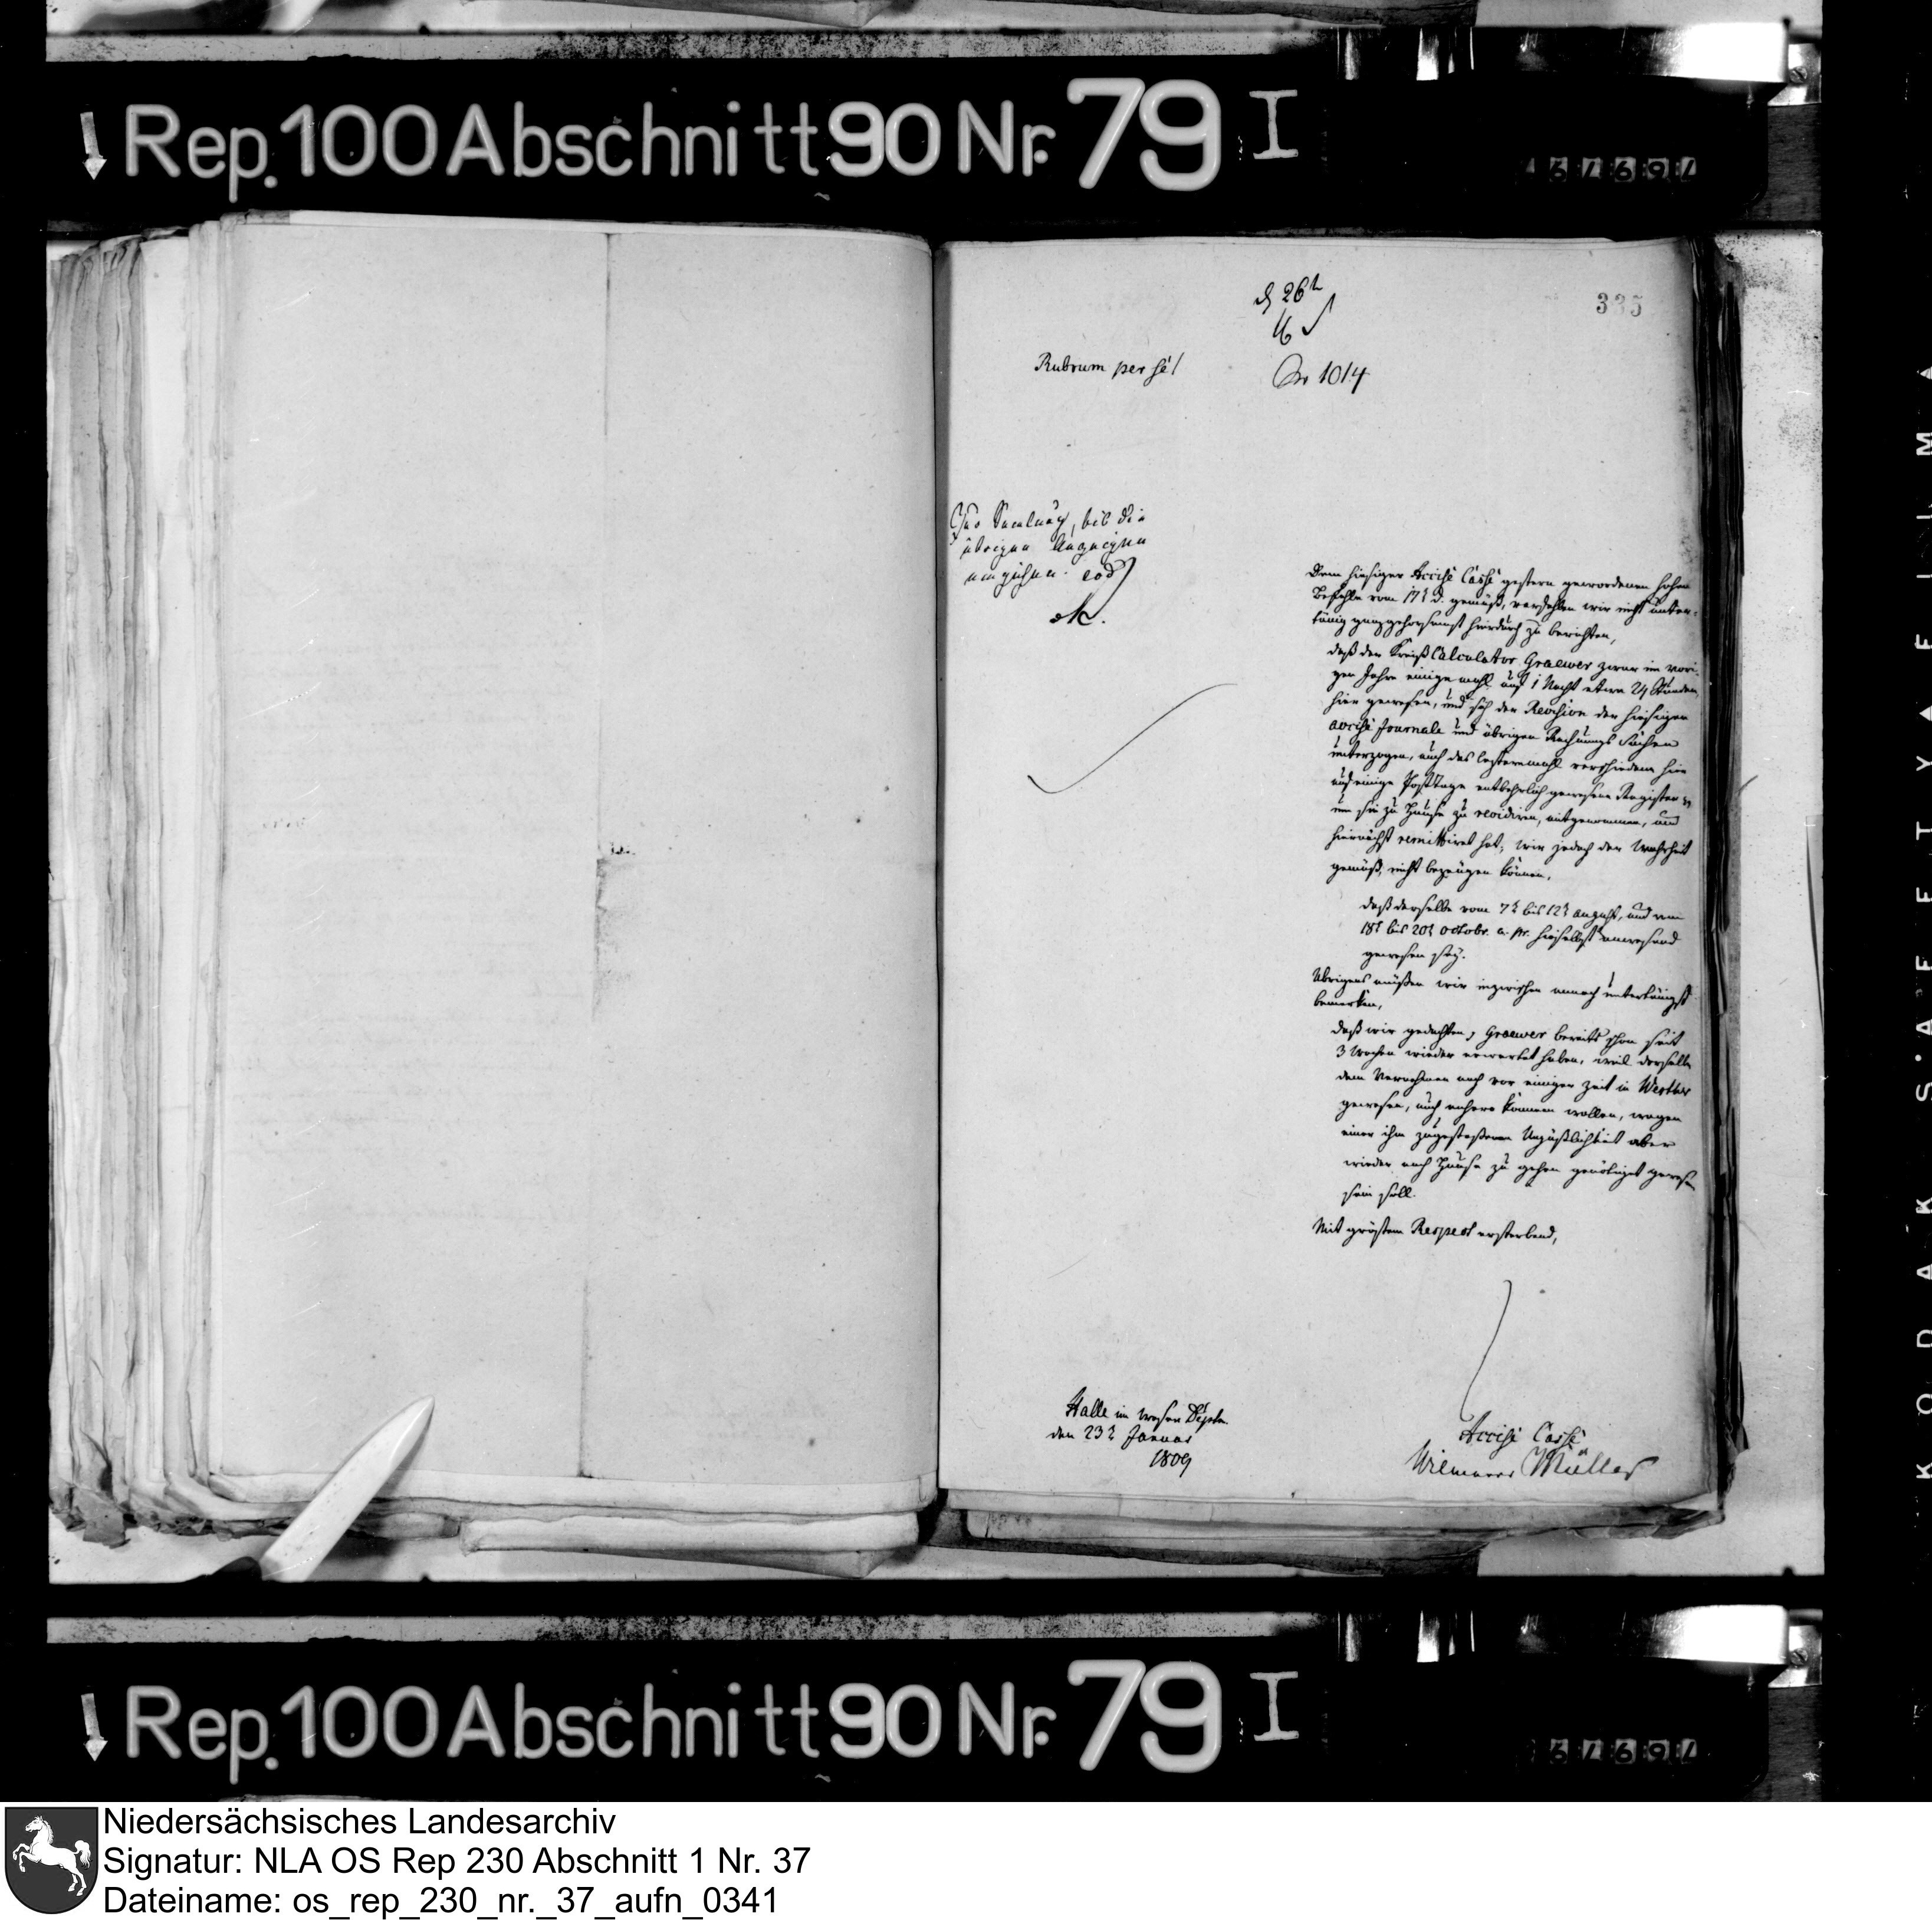 Rep. 100 Abschnitt 90 Nr. 79 I
335
26
Nr 1014
Rubrum per se/
bis die
übrigen Anzeigen
eingehen. eod
Dem hiesiger Accise Casse gestern gewordenen hohen
Befehle vom 17t d. gemäß, verfehlen wir nicht unter-
tänig ganzgehorsamst hierdurch zu berichten,
daß der Kreiß Calculator Graewer zwar im vori-
gen Jahre einige mahl auf 1 Nacht etwa 24 Stunden,
hier gewesen, und sich der Revision der hiesigen
accise Journale und übrigen Rechnungs Sachen
unterzogen, auch das letzteremahl verschiedene hier
auf einige Posttage entbehrlich gewesene Register
um sie zu Hause zu revidiren, mitgenommen, und
hiernächst remittiret hat; wir jedoch der Wahrheit
gemäß, nicht bezeugen können,
daß derselbe vom 7t bis 12t august, und vom
18t bis 20t octobr. a. pr. hieselbst anwesend
gewesen sey.
Übrigens müßen wir inzwischen annoch unterthänigst
bemerken,
daß wir gedachten, Graewer bereits schon seit
3 Wochen wieder erwartet haben, weil derselbe
dem Vernehmen nach vor einiger Zeit in Werther
gewesen, auch anhero kommen wollen, wegen
einer ihm zugestoßenen Unpäßlichkeit aber
wieder nach Hause zu gehen genötiget gewesen
sein soll.
Mit größtem Respect ersterbend,
Halle im Weser Depten.
den 23t Januar
1809
Accise Casse
Wilmanns Müller
Rep. 100 Abschnitt 90 Nr. 79 I
KODAK SAFETY FILM
Niedersächsisches Landesarchiv
Signatur: NLA OS Rep 230 Abschnitt 1 Nr. 37
Dateiname: os_rep_230_nr._37_aufn_0341